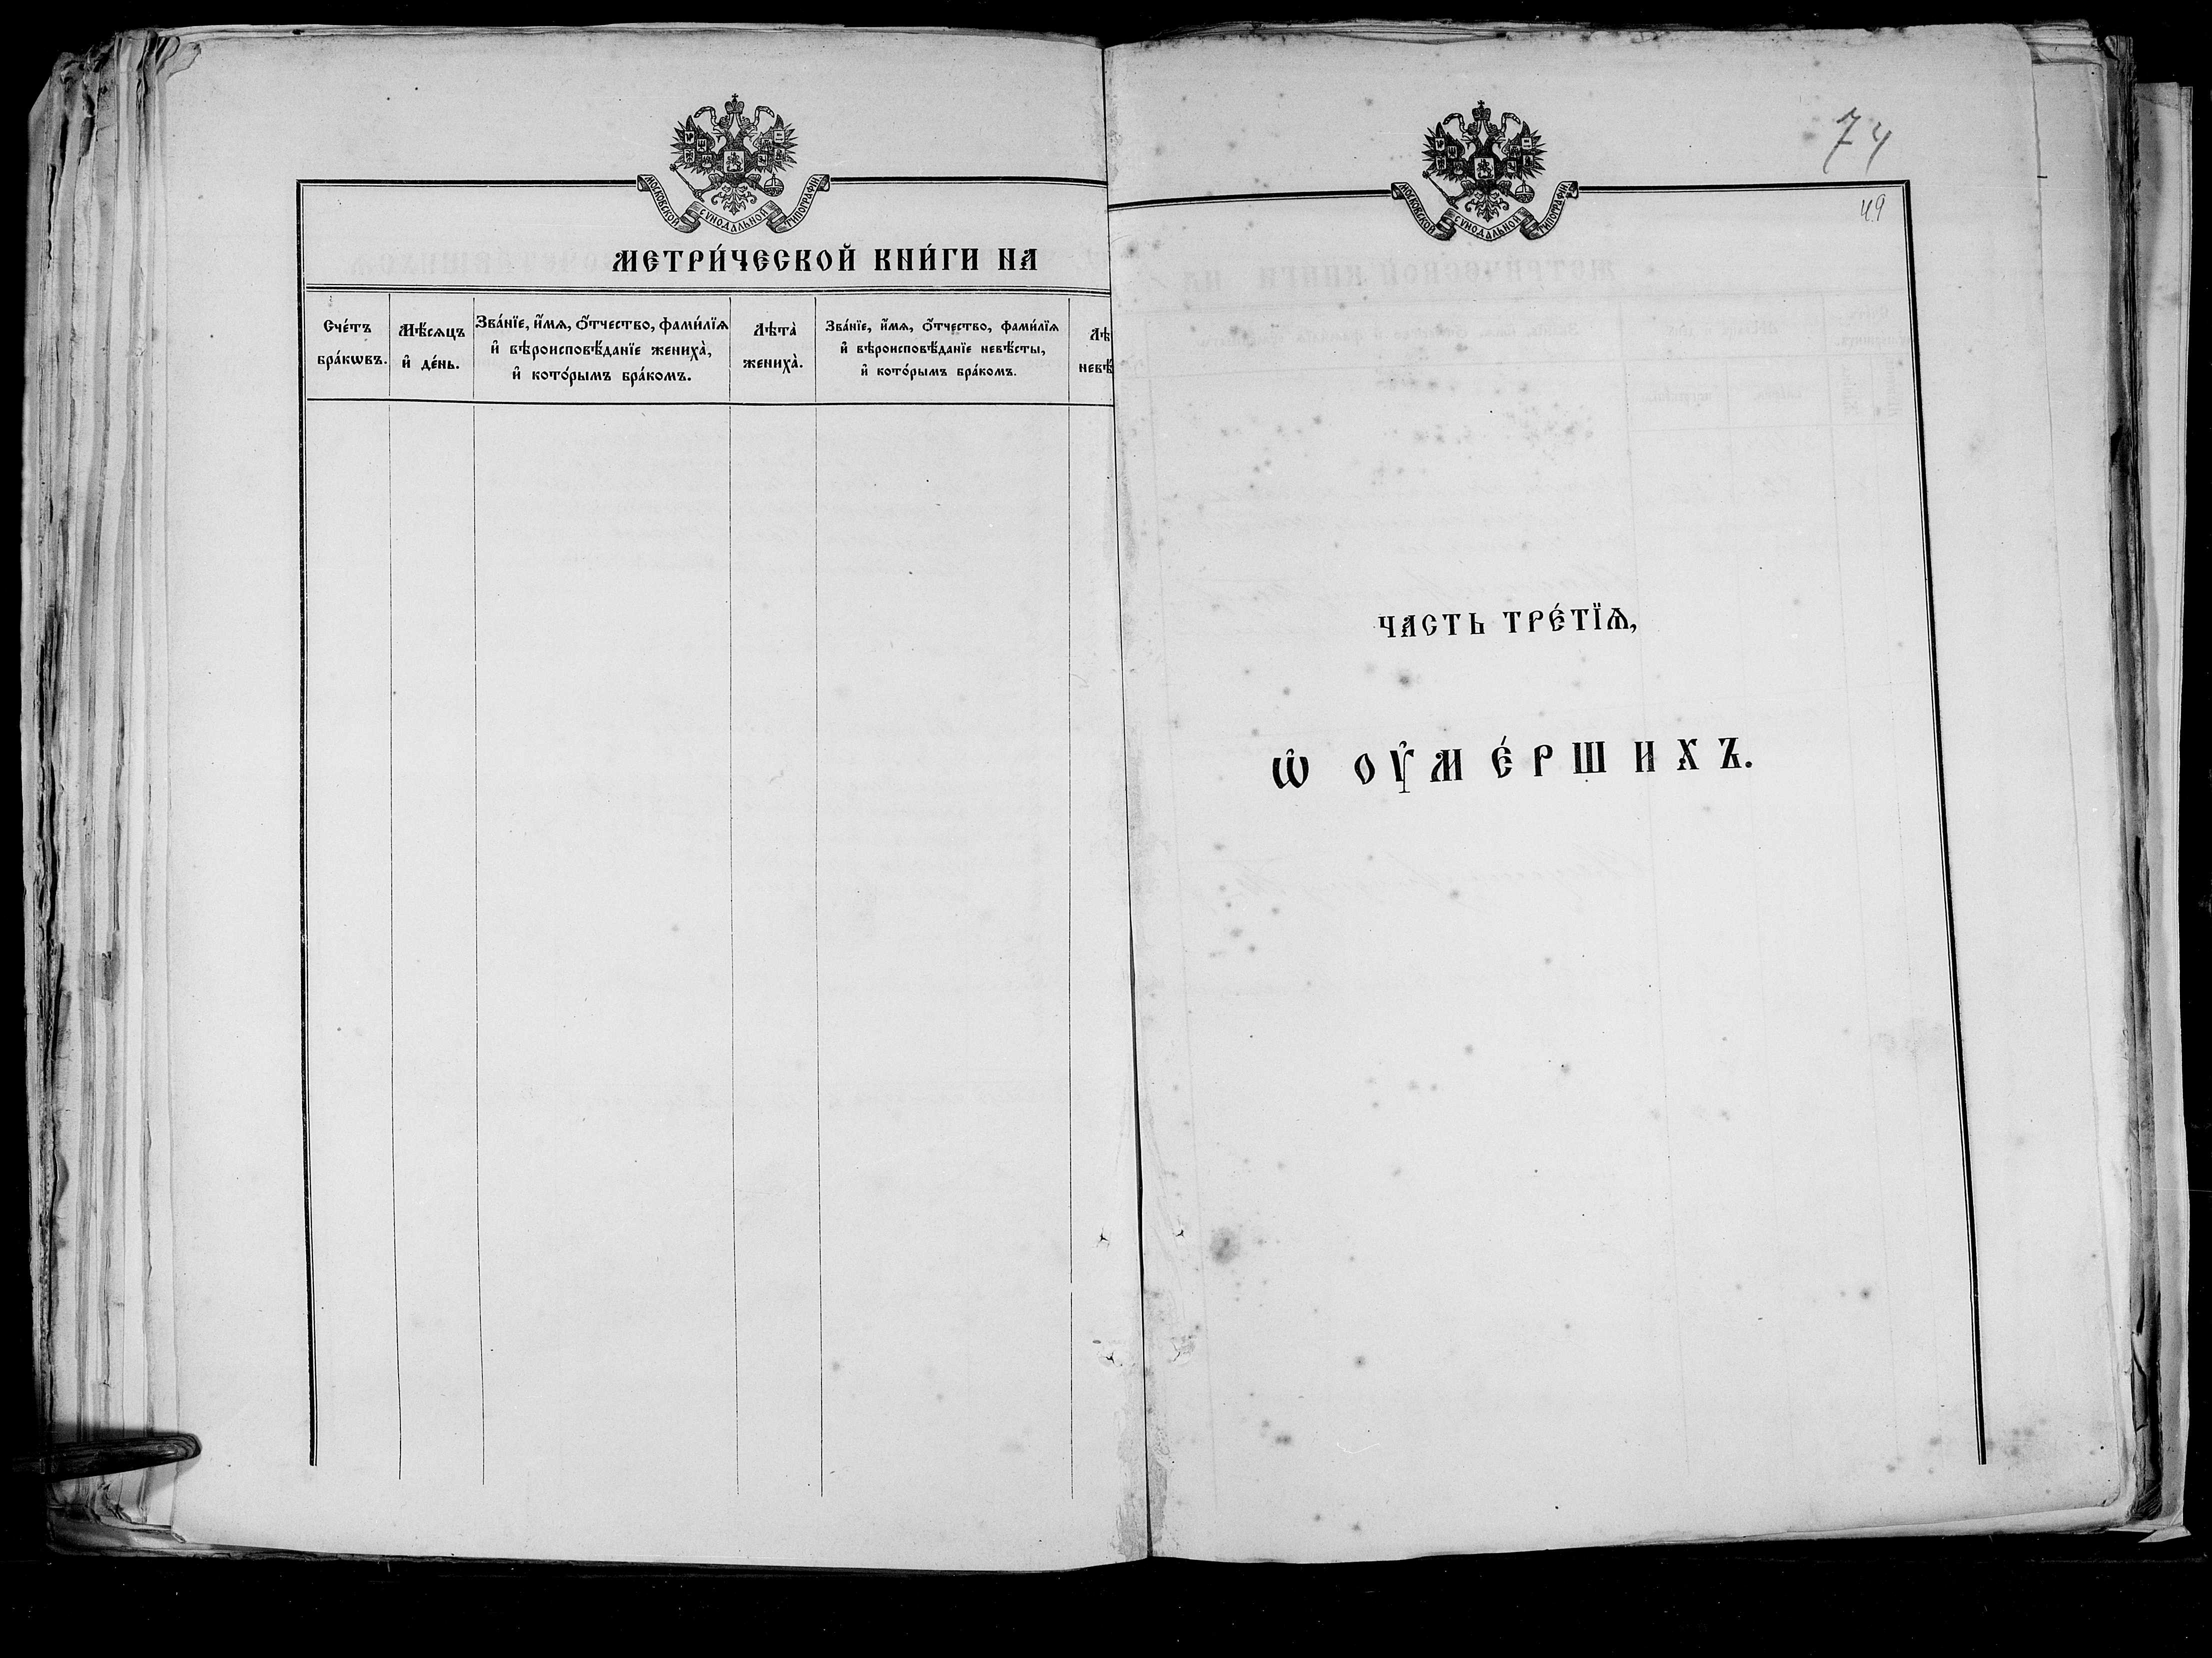 МОСКОВСКОЙ СѴНОДАЛЬНОЙ ТИПОГРАФІИ
МЕТРИ́ЧЕСКОЙ КНИ́ГИ НА
Сче́тъ бра́кѡвъ.
Мѣ́сяцъ и҆ де́нь.
Зва́нїе, и҆́мѧ, ѻ҆́тчество, фами́лїѧ
и҆ вѣроисповѣ́данїе жениха̀,
и҆ кото́рымъ бра́комъ.
Лѣта̀
жениха̀.
Зва́нїе, и҆́мѧ, ѻ҆́тчество, фами́лїѧ
и҆ вѣроисповѣ́данїе невѣ́сты,
и҆ кото́рымъ бра́комъ.
Лѣ
невѣ́
74
МОСКОВСКОЙ СѴНОДАЛЬНОЙ ТИПОГРАФІИ
49
ЧАСТЬ ТРЕ́ТЇѦ,
Ѡ҆ ОУ҆МЕ́РШИХЪ.